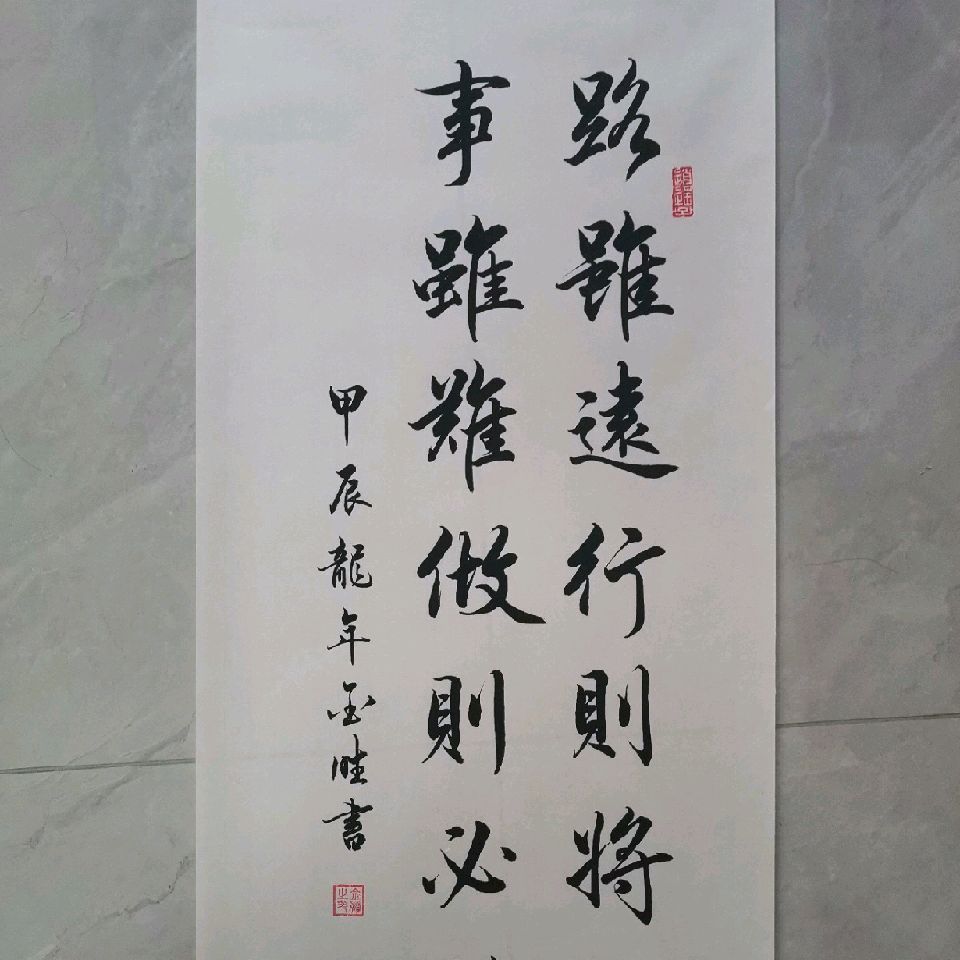 路雖遠行則將
事雖難做則必
甲辰龍年金勝書